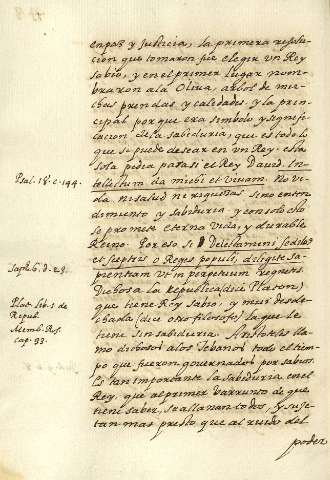 en paz y Justicia, la primera resolu-
cion que tomaron fue elegir vn Rey
Sabio, y en el primer lugar nom-
braron a la Oliva, arbol de mu-
chas prendas y calidades, y la prin-
cipal por que era simbolo y signifi-
cacion de la sabiduria, que es todo lo
que se puede desear en vn Rey. esta
sola pidia para si el Rey David. In-
Psal. 18. c. 144.
tellectum da michi et vivam. No vi-
da ni salud ni riquezas sino enten-
dimiento y Sabiduria y con solo esto
se promete eterna vida, y durable
Reyno. Por eso si Delectamini sedibus
Sap. 6. d. 23.
et sceptris o Reges populi, diligite Sa-
pientiam vt in perpetuum regnetis.
Plat. lib. 5. de
Dichosa la Republica (dice Platon)
Repub.
que tiene Rey Sabio, y muy desdi-
chada (dice otro filosofo) la que le
cap. 33.
tiene sin sabiduria. Aristoteles lla-
mo dichosos a los Tebanos todo el tiem-
po que fueron governados por sabios.
Es tan importante la Sabiduria en el
Rey, que al primer varrunto de que
tiene saber, se allanan todos, y suje-
tan mas presto que al ruido del
poder